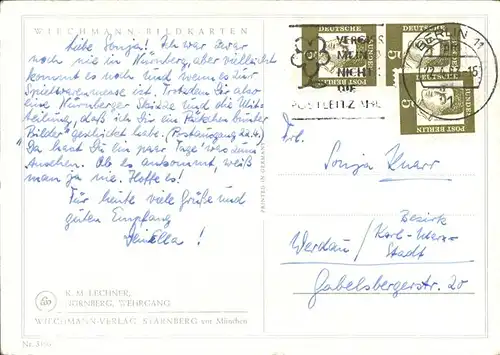 WIECHMANN-BILDKARTEN
Liebe Sonja! Ich war zwar
noch nie in Nürnberg, aber vielleicht
kommt es noch und wenn es zur
Spielwarenmesse ist. Trotzdem Dir also
eine Nürnberger Skizze und die Mit-
teilung, daß ich Dir ein Päckchen bunter
"Bilder" geschickt habe. (Postausgang 22.4.)
Da hast Du ein paar Tage was zum
Ansehen. Ob es ankommt, weiß
man ja nie. Hoffe es!
Für heute viele Grüße und
guten Empfang
Ella!
K. M. LECHNER,
NÜRNBERG, WEHRGANG
WIECHMANN-VERLAG STARNBERG vor München
Nr.
PRINTED IN GERMANY
VERGISS
MEIN
NICHT
DIE
POSTLEITZAHL
BERLIN 11
DEUTSCHE
BUNDES
POST BERLIN
5
Frl.
Sonja Knarr
Werdau/
Bezirk
Karl-Marx-
Stadt
Gabelsbergerstr. 20